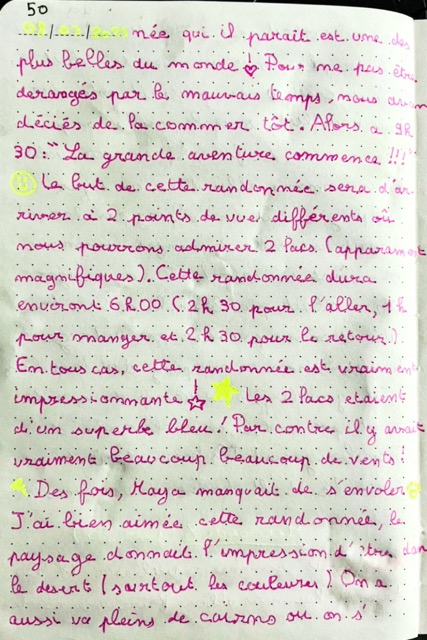 50
née qui il parait est une des
plus belles du monde ! Pour ne pas être
derangés par le mauvais temps, nous avon
déciés de la commer tôt. Alors a 9h
30 : "La grande aventure commence !!!"
Le but de cette randonnée sera d'ar
river à 2 points de vue différents où
nous pourrons admirer 2 lacs (apparament
magnifiques). Cette randonnée dura
environt 6h00 (2h30 pour l'aller, 1h
pour manger et 2h30 pour le retour).
En tous cas, cette randonnée est vraiment
impressionnante ! Les 2 lacs etaient
d'un superbe bleu ! Par contre il y avait
vraiment beaucoup beaucoup de vents !
Des fois, Maya manquait de s'envoler
J'ai bien aimée cette randonnée, le
paysage donnait l'impression d'être dan
le desert (surtout les couleures) On a
aussi vu pleins de cairns où on s'